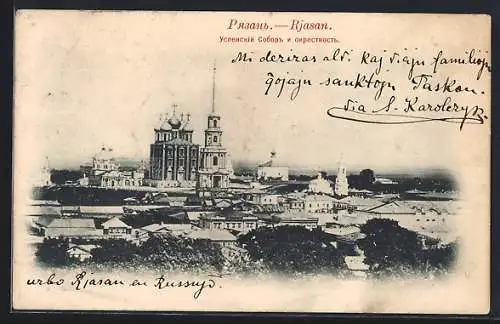 Рязань.—Rjasan.
Успенскій Соборъ и окрестность.
Mi deziras al Vi kaj Viajn familiojn
ĝojajn sanktajn Paskon.
Via S. Karolczyk
urbo Rjasan en Russujo